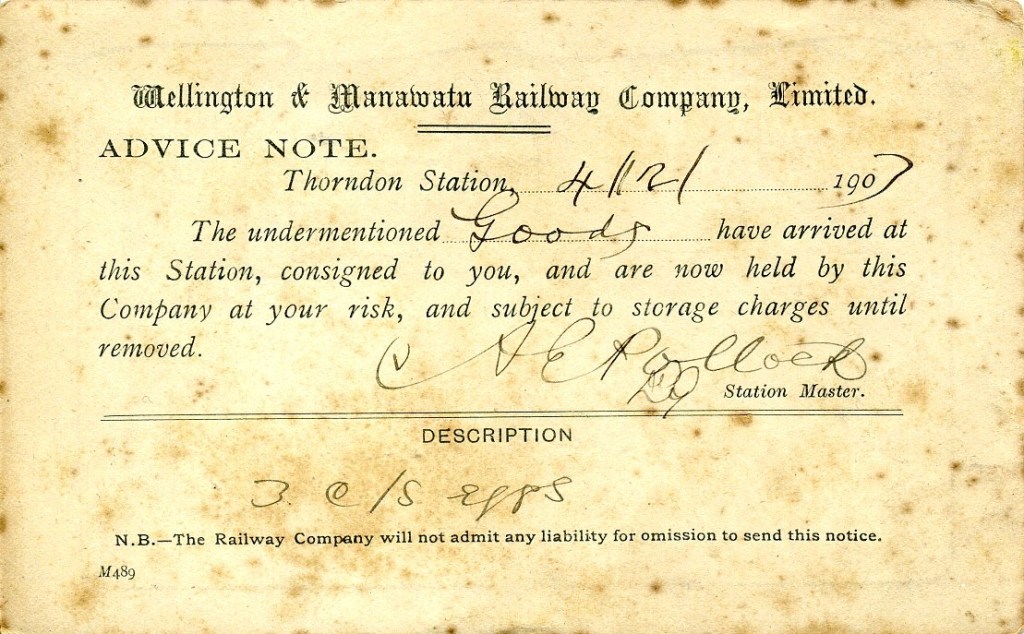 Wellington & Manawatu Railway Company, Limited.
ADVICE NOTE.
Thorndon Station, 4/12/ 1907
The undermentioned Goods have arrived at
this Station, consigned to you, and are now held by this
Company at your risk, and subject to storage charges until
removed.
A E Pollock
Station Master.
DESCRIPTION
3 c/s eggs
N.B.—The Railway Company will not admit any liability for omission to send this notice.
M489